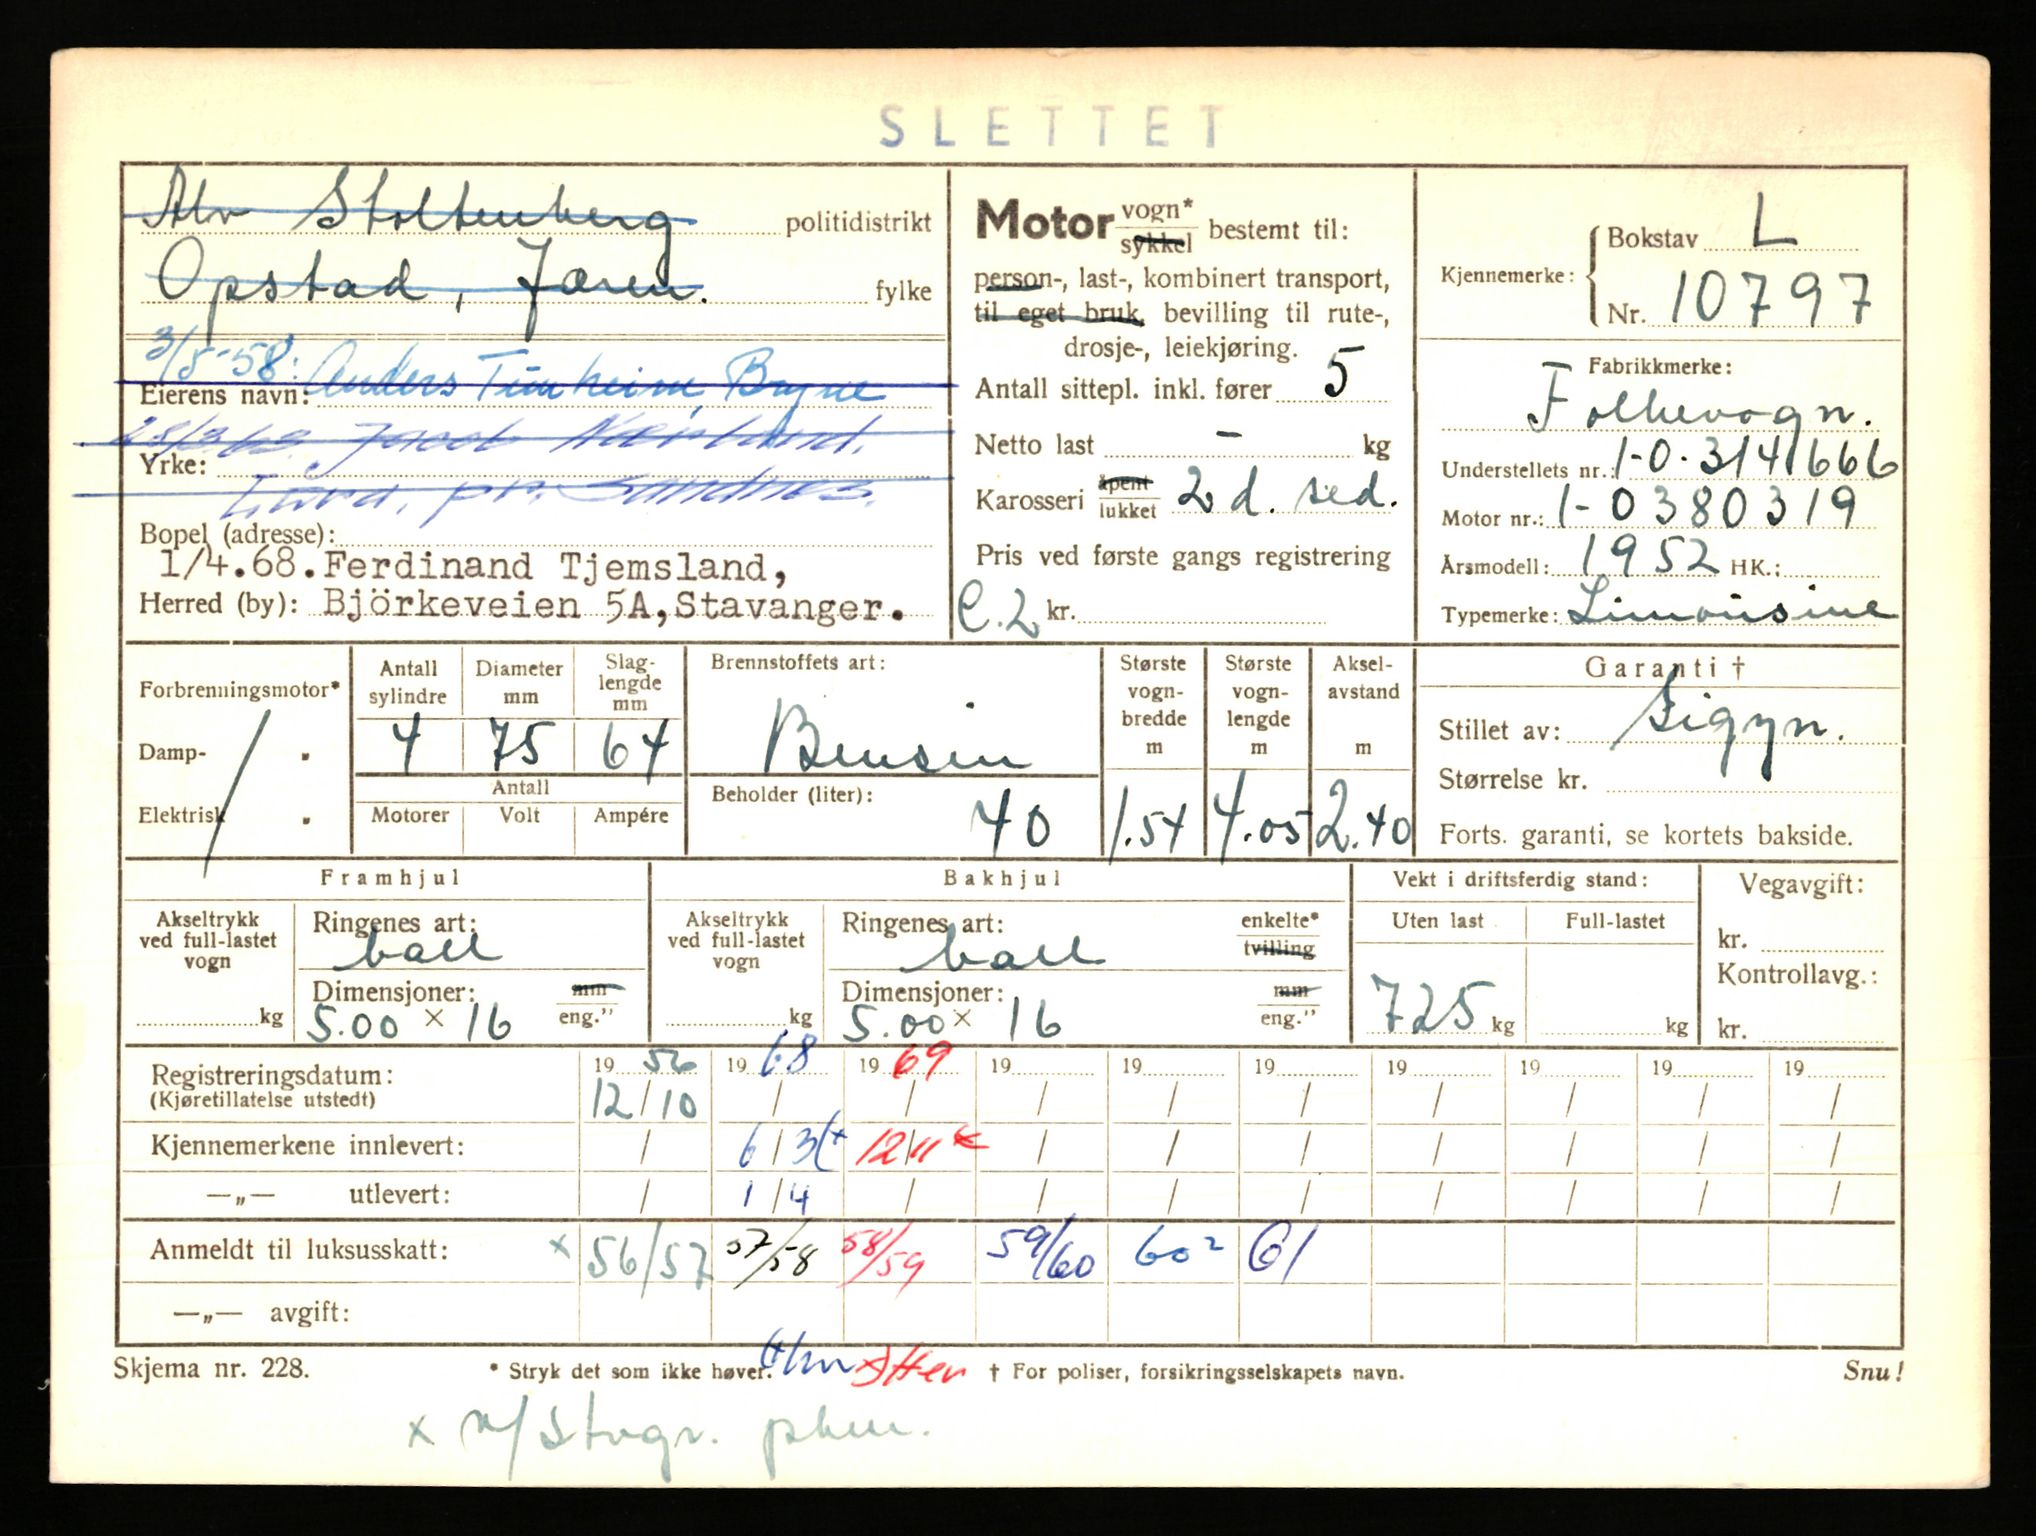 SLETTET
Alv Stoltenberg politidistrikt
Opstad, Jæren. fylke
3/5-58: Anders Tunheim, Bryne
Eierens navn:
Jacob Nærland.
Yrke:
Lura, pr. Sandnes.
Bopel (adresse):
1/4.68. Ferdinand Tjemsland,
Herred (by): Björkeveien 5A, Stavanger.
Motor vogn* sykkel bestemt til:
person-, last-, kombinert transport,
til eget bruk, bevilling til rute-,
drosje-, leiekjøring.
Antall sittepl. inkl. fører 5
Netto last - kg
Karosseri åpent lukket 2 d. sed.
Pris ved første gangs registrering
C.2 kr.
Kjennemerke: Bokstav L
Nr. 10797
Fabrikkmerke:
Folkevogn.
Understellets nr.: 1-0.3141666
Motor nr.: 1-0380319
Årsmodell: 1952 HK.:
Typemerke: Limousine
Forbrenningsmotor*
Damp- "
Elektrisk "
Antall sylindre Diameter mm Slag-lengde mm
4 75 64
Antall
Motorer Volt Ampére
Brennstoffets art:
Bensin
Beholder (liter):
40
Største vogn-bredde m Største vogn-lengde m Aksel-avstand m
1.54 4.05 2.40
Garanti †
Stillet av: Sigyn.
Størrelse kr.
Forts. garanti, se kortets bakside.
Framhjul
Akseltrykk ved full-lastet vogn
kg
Ringenes art:
ball
Dimensjoner: mm
5.00 x 16 eng."
Bakhjul
Akseltrykk ved full-lastet vogn
kg
Ringenes art: enkelte*
ball tvilling
Dimensjoner: mm
5.00 x 16 eng."
Vekt i driftsferdig stand:
Uten last Full-lastet
725 kg kg
Vegavgift:
kr.
Kontrollavg.:
kr.
Registreringsdatum: 19 56 19 68 19 69 19 19 19 19 19 19 19
(Kjøretillatelse utstedt) 12/10 / / / / / / / / /
Kjennemerkene innlevert: / 6/3 12/11 / / / / / / /
—„— utlevert: / 1/4 / / / / / / / /
Anmeldt til luksusskatt: x 56/57 57/58 58/59 59/60 60² 61
—„— avgift:
Skjema nr. 228. * Stryk det som ikke høver. † For poliser, forsikringsselskapets navn. Snu!